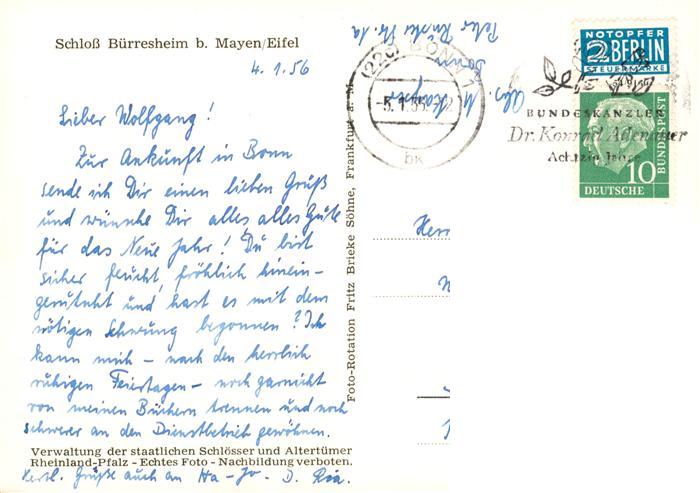 Schloß Bürresheim b. Mayen/Eifel
4.1.56
Lieber Wolfgang!
Zur Ankunft in Bonn
sende ich Dir einen lieben Gruß
und wünsche Dir alles, alles Gute
für das Neue Jahr! Du bist
sicher feucht, fröhlich hinein-
gerutscht und hast es mit dem
nötigen Schwung begonnen? Ich
kann mich – nach den herrlich
ruhigen Feiertagen – noch garnicht
von meinen Büchern trennen und noch
schwerer an den Dienstbetrieb gewöhnen.
Verwaltung der staatlichen Schlösser und Altertümer
Rheinland-Pfalz - Echtes Foto - Nachbildung verboten.
Herzl. Grüße auch an Ha-Jo. D. Ria.
Foto-Rotation Fritz Brieke Söhne, Frankfurt a. M.
Abs. M.
Bonn
Str. 1a
(22c) BONN 1
-5.1.56.-12
bK
NOTOPFER
2 BERLIN
STEUERMARKE
BUNDESKANZLER
Dr. Konrad Adenauer
Achtzig Jahre
10
DEUTSCHE
BUNDESPOST
Herr